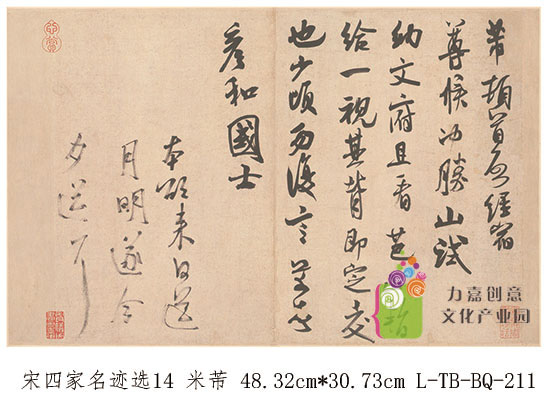 芾頓首啓經宿
尊候冲勝山試
納文府且看芭 暫
給一視其背即定交
也少頃勿復言芾頓首
彥和國士
本欲來日送
月明遂今
夕送耳
力嘉创意
文化产业园
宋四家名迹选14 米芾 48.32cm*30.73cm L-TB-BQ-211